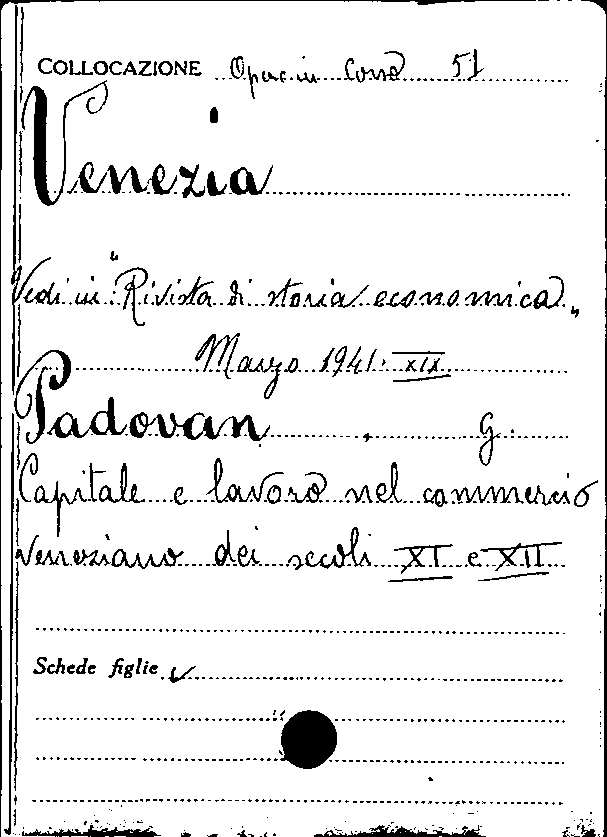 COLLOCAZIONE Opere in Corso 51
Venezia
Vedi in "Rivista di storia economica„
Marzo 1941. XIX
Padovan , G.
Capitale e lavoro nel commercio
veneziano dei secoli XI e XII
Schede figlie